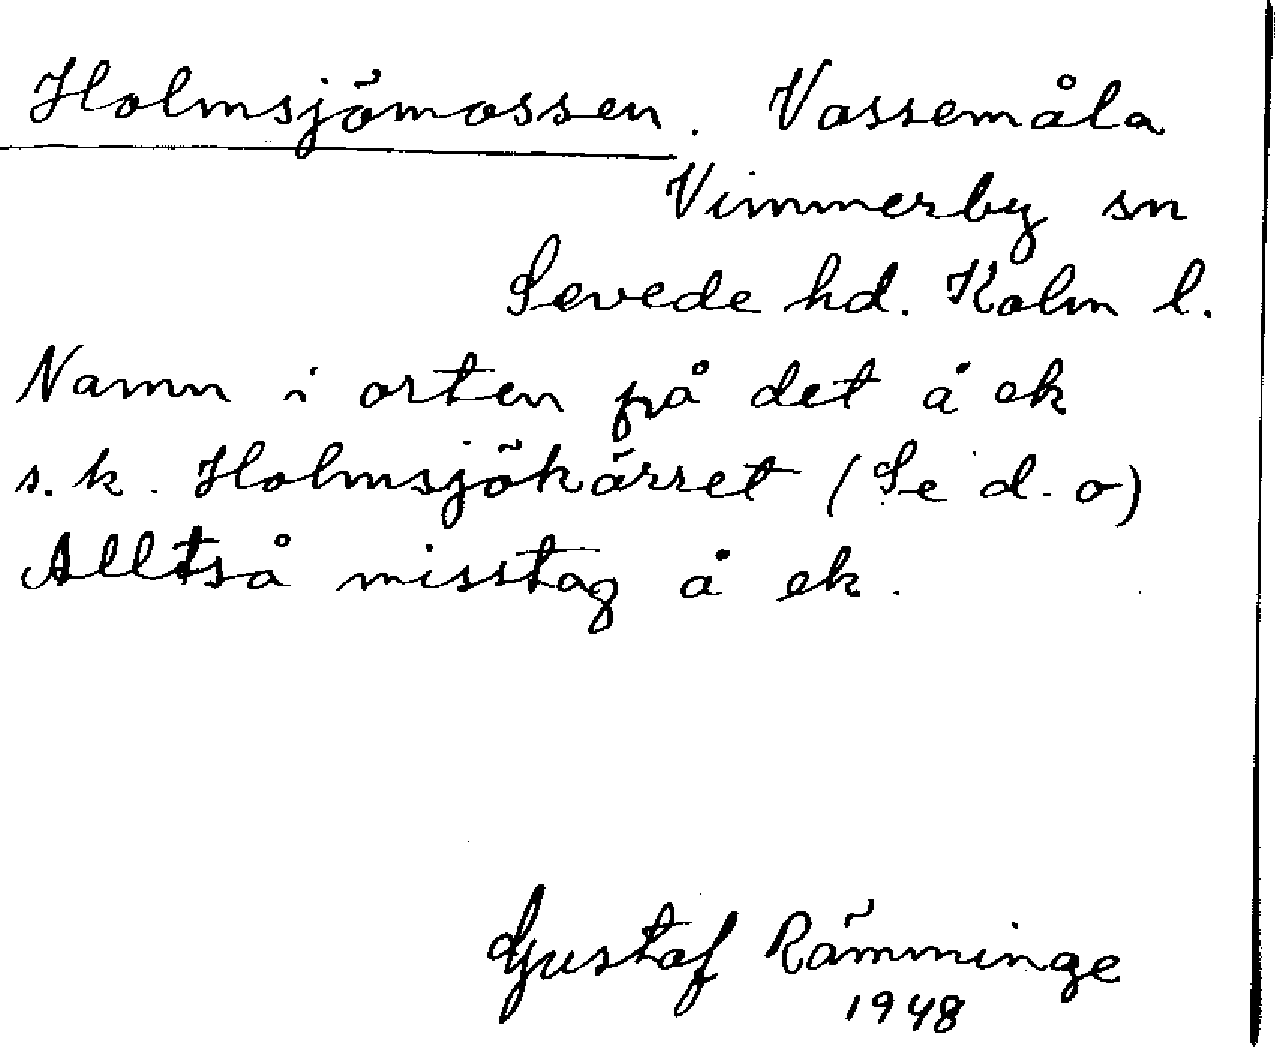 Holmsjömossen. Vassemåla
Vimmerby sn
Sevede hd. Kalm l.
Namn i orten på det å ek
s.k. Holmsjökärret (Se d.o)
Alltså misstag å ek.
Gustaf Rämminge
1948